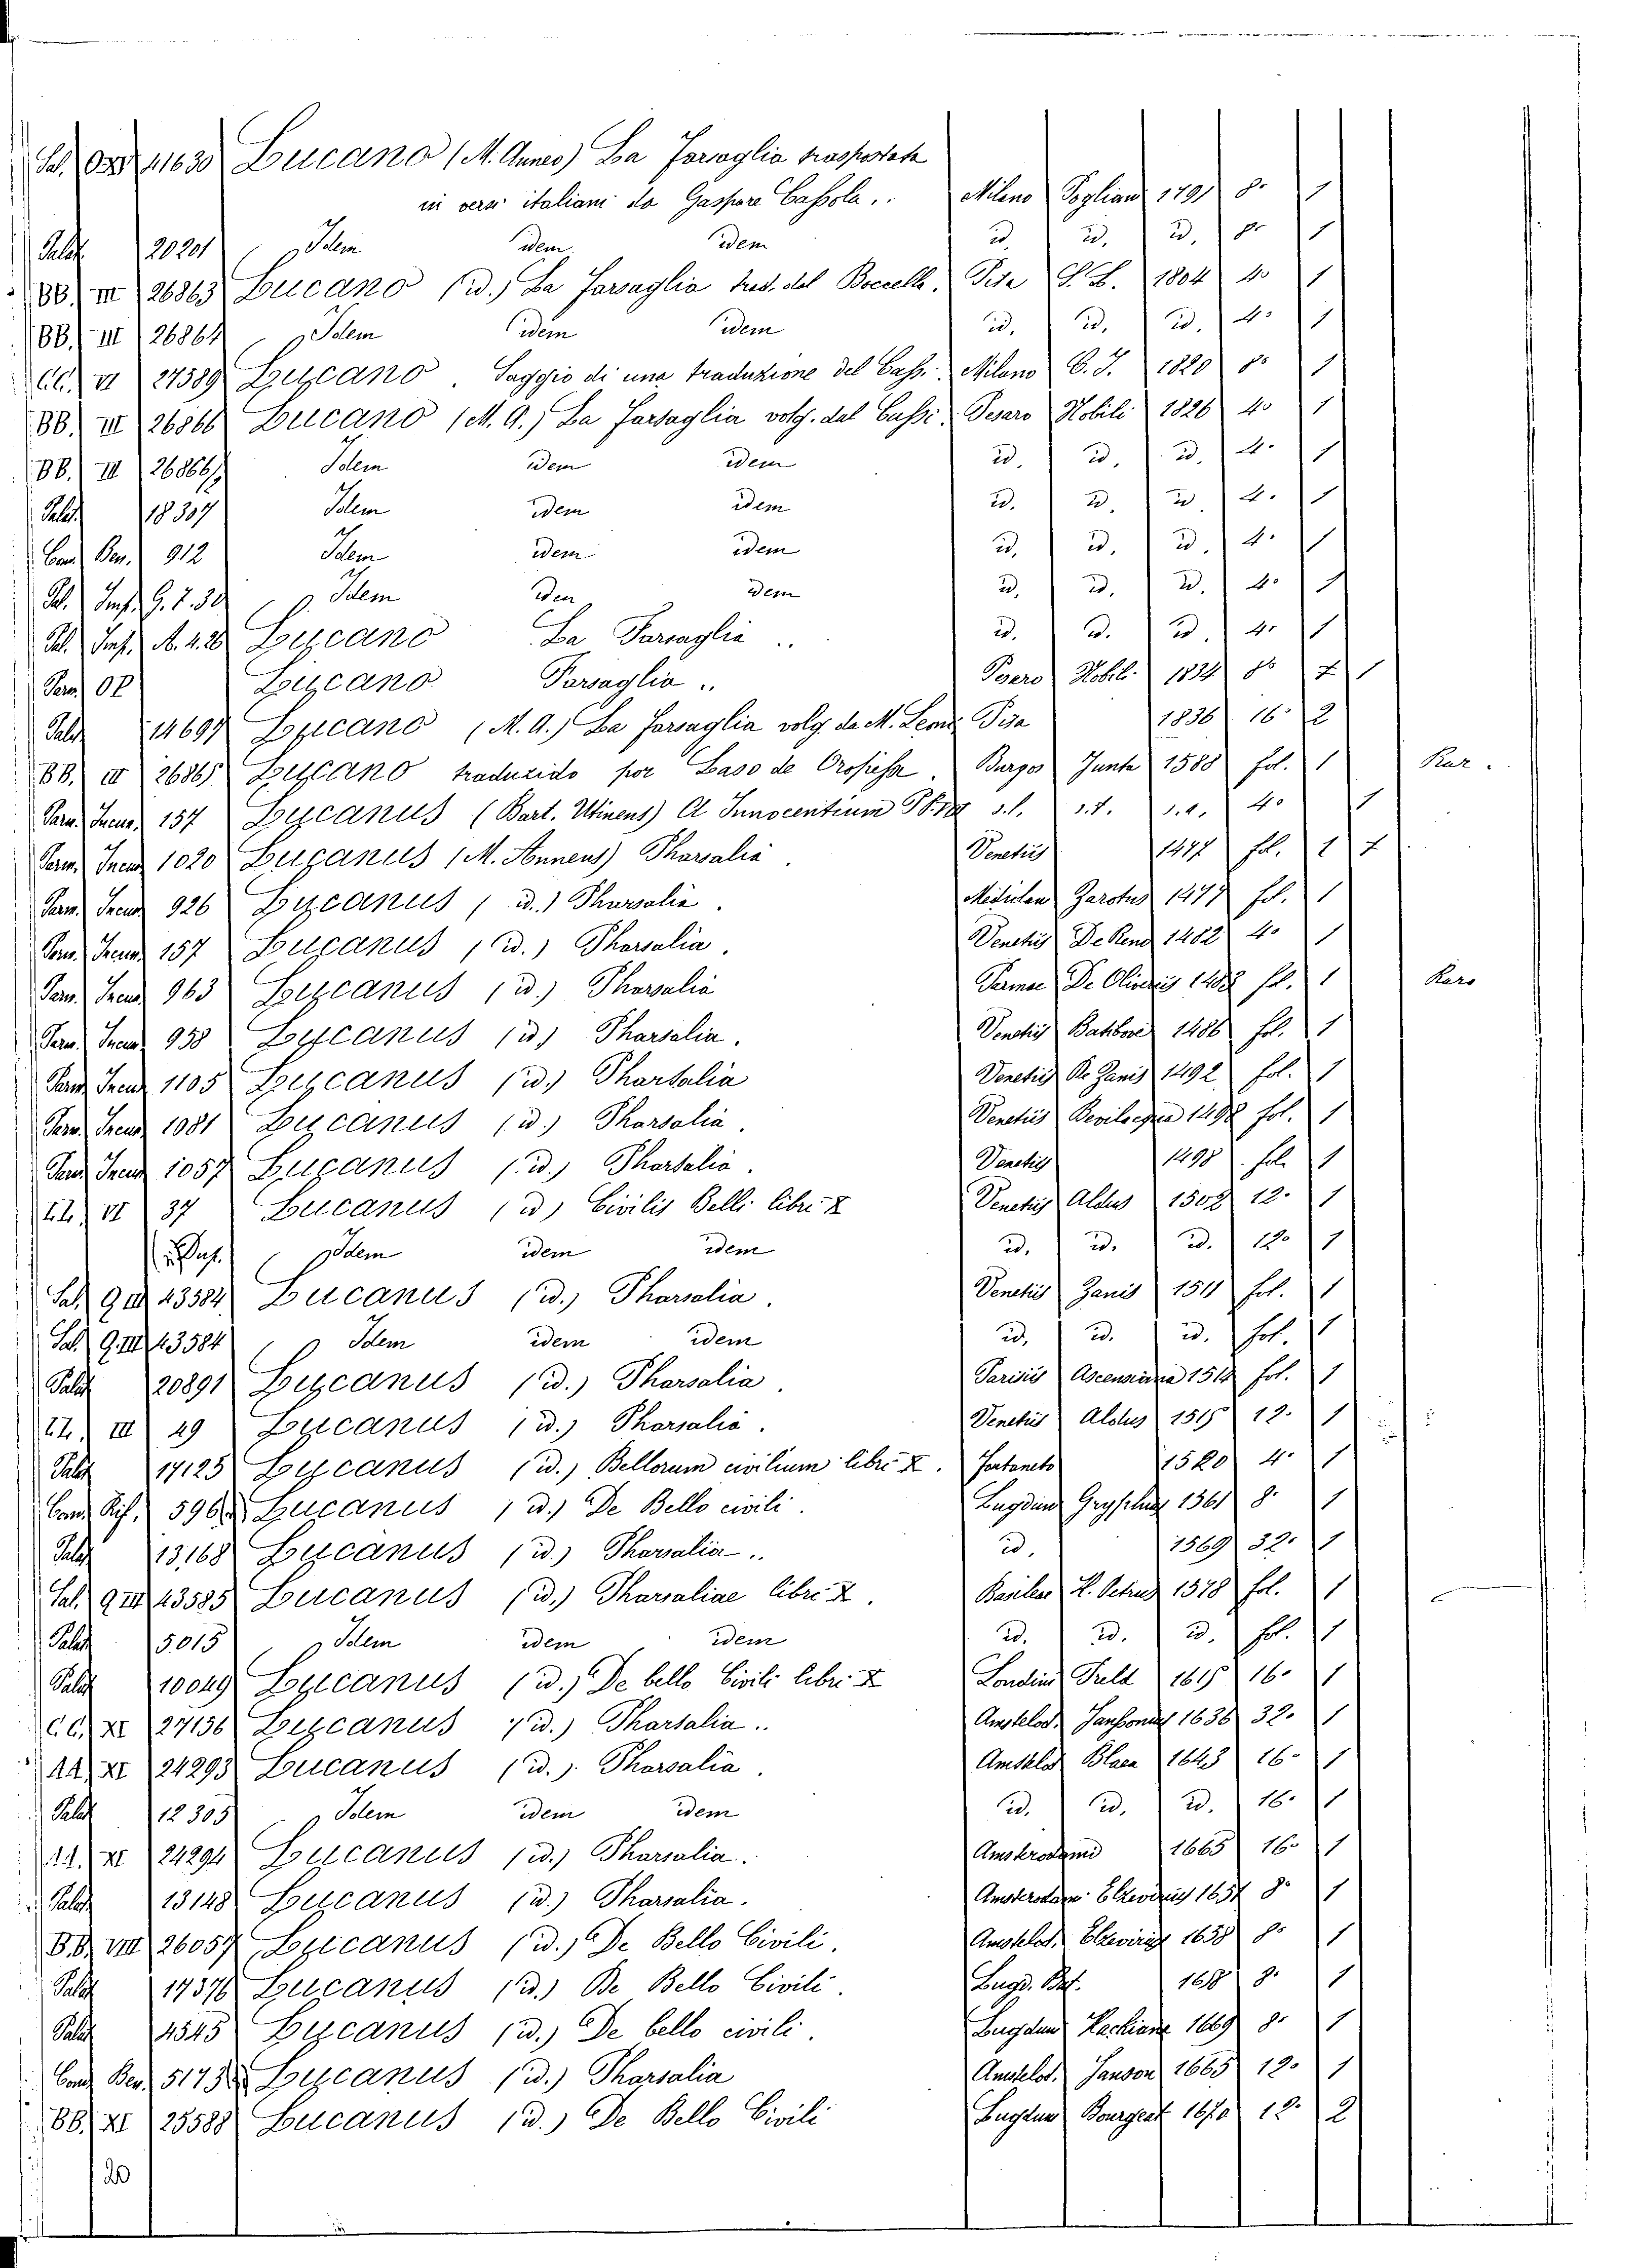 41630 Lucano (M. Anneo) La Farsaglia trasportata
in versi italiani da Gaspare Cassola.. Milano Pogliani 1791 8° 1
Palat. 20201 Idem idem idem id. id. id. 8° 1
BB. III 26863 Lucano (id.) La Farsaglia trad. del Boccella. Pisa 1804 4° 1
BB. III 26864 Idem idem idem id. id. id. 4° 1
CC. VI 27589 Lucano. Saggio di una traduzione del Cassi. Milano 1820 8° 1
BB. III 26866 Lucano (M. A.) La Farsaglia volg. dal Cassi. Pesaro Nobili 1826 4° 1
BB. III 26866/1 Idem idem idem id. id. id. 4° 1
Palat. 18307 Idem idem idem id. id. id. 4° 1
Cons. Ben. 912 Idem idem idem id. id. id. 4° 1
Pal. Imp. G. 7. 30 Idem idem idem id. id. id. 4° 1
Pal. Imp. A. 4. 28 Lucano La Farsaglia .. id. id. id. 4° 1
Parm. Lucano Farsaglia .. Pesaro Nobili 1834 8° 1
Palat. 14697 Lucano (M. A.) La Farsaglia volg. da M. Leoni Pisa 1836 16° 2
BB. III 26865 Lucano traduzido por Laso de Oropesa. Burgos Junta 1588 fol. 1 Rar.
Parm. Incun. 157 Lucanus (Bart. Utinens) A Innocentium s.l. s.t. s.a. 4° 1
Parm. Incun. 1020 Lucanus (M. Anneus) Pharsalia. Venetiis 1477 fol. 1
Parm. Incun. 926 Lucanus (id.) Pharsalia. Mediolan Zarotus 1477 fol. 1
Parm. Incun. 157 Lucanus (id.) Pharsalia. Venetiis 1482 4° 1
Parm. Incun. 963 Lucanus (id.) Pharsalia Parmae De Oliveriis 1483 fol. 1 Raro
Parm. Incun. 958 Lucanus (id.) Pharsalia. Venetiis Battibove 1486 fol. 1
Parm. Incun. 1105 Lucanus (id.) Pharsalia Venetiis De Zanis 1492 fol. 1
Parm. Incun. 1081 Lucanus (id.) Pharsalia. Venetiis Bevilaqua 1498 fol. 1
Parm. Incun. 1057 Lucanus (id.) Pharsalia. Venetiis 1498 fol. 1
LL. VI 37 Lucanus (id) Civilis Belli libri X Venetiis Aldus 1502 12° 1
Idem idem idem id. id. id. 12° 1
Sal. G. III 43584 Lucanus (id.) Pharsalia. Venetiis Zanis 1511 fol. 1
Sal. G. III 43584 Idem idem idem id. id. id. fol. 1
Palat. 20891 Lucanus (id.) Pharsalia. Parisiis Ascensiana 1514 fol. 1
LL. III 49 Lucanus (id.) Pharsalia. Venetiis Aldus 1515 12° 1
Palat. 17125 Lucanus (id.) Bellorum civilium libri X. Fontaneto 1520 4° 1
Cons. Rif. Lucanus (id.) De Bello civili. Lugduni Gryphius 1561 8° 1
Palat. 13168 Lucanus (id.) Pharsalia.. id. 1569 32° 1
Sal. G. III 43585 Lucanus (id.) Pharsaliae libri X. Basileae H. Petrus 1578 fol. 1
Palat. 5015 Idem idem idem id. id. id. fol. 1
Palat. 10049 Lucanus (id.) De bello Civili libri X Londini Field 1618 16° 1
CC. XI 27136 Lucanus (id.) Pharsalia.. Amstelod. Janssonius 1636 32° 1
AA. XI 24293 Lucanus (id.) Pharsalia. Amstelod Blaeu 1643 16° 1
Palat 12303 Idem idem idem id. id. id. 16° 1
AA. XI 24294 Lucanus (id.) Pharsalia. Amsterodami 1665 16° 1
Palat 13148 Lucanus (id.) Pharsalia. Amsterodam. Elzevirius 1651 8° 1
BB. VIII 26057 Lucanus (id.) De Bello Civili. Amstelod. Elzevirius 1658 8° 1
Palat 17376 Lucanus (id.) De Bello Civili. Lugd. Bat. 8° 1
Palat 4545 Lucanus (id.) De bello civili. Lugdun Hackiana 1669 8° 1
Cons. Ben. Lucanus (id.) Pharsalia Amstelod. Janson 1665 12° 1
BB. XI 25588 Lucanus (id.) De Bello Civili Lugdun Bourgeat 1670 12° 2
20